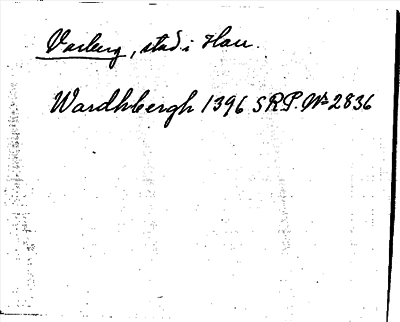 Varberg, stad i Hall.
Wardhbergh 1396 SRP. No 2836